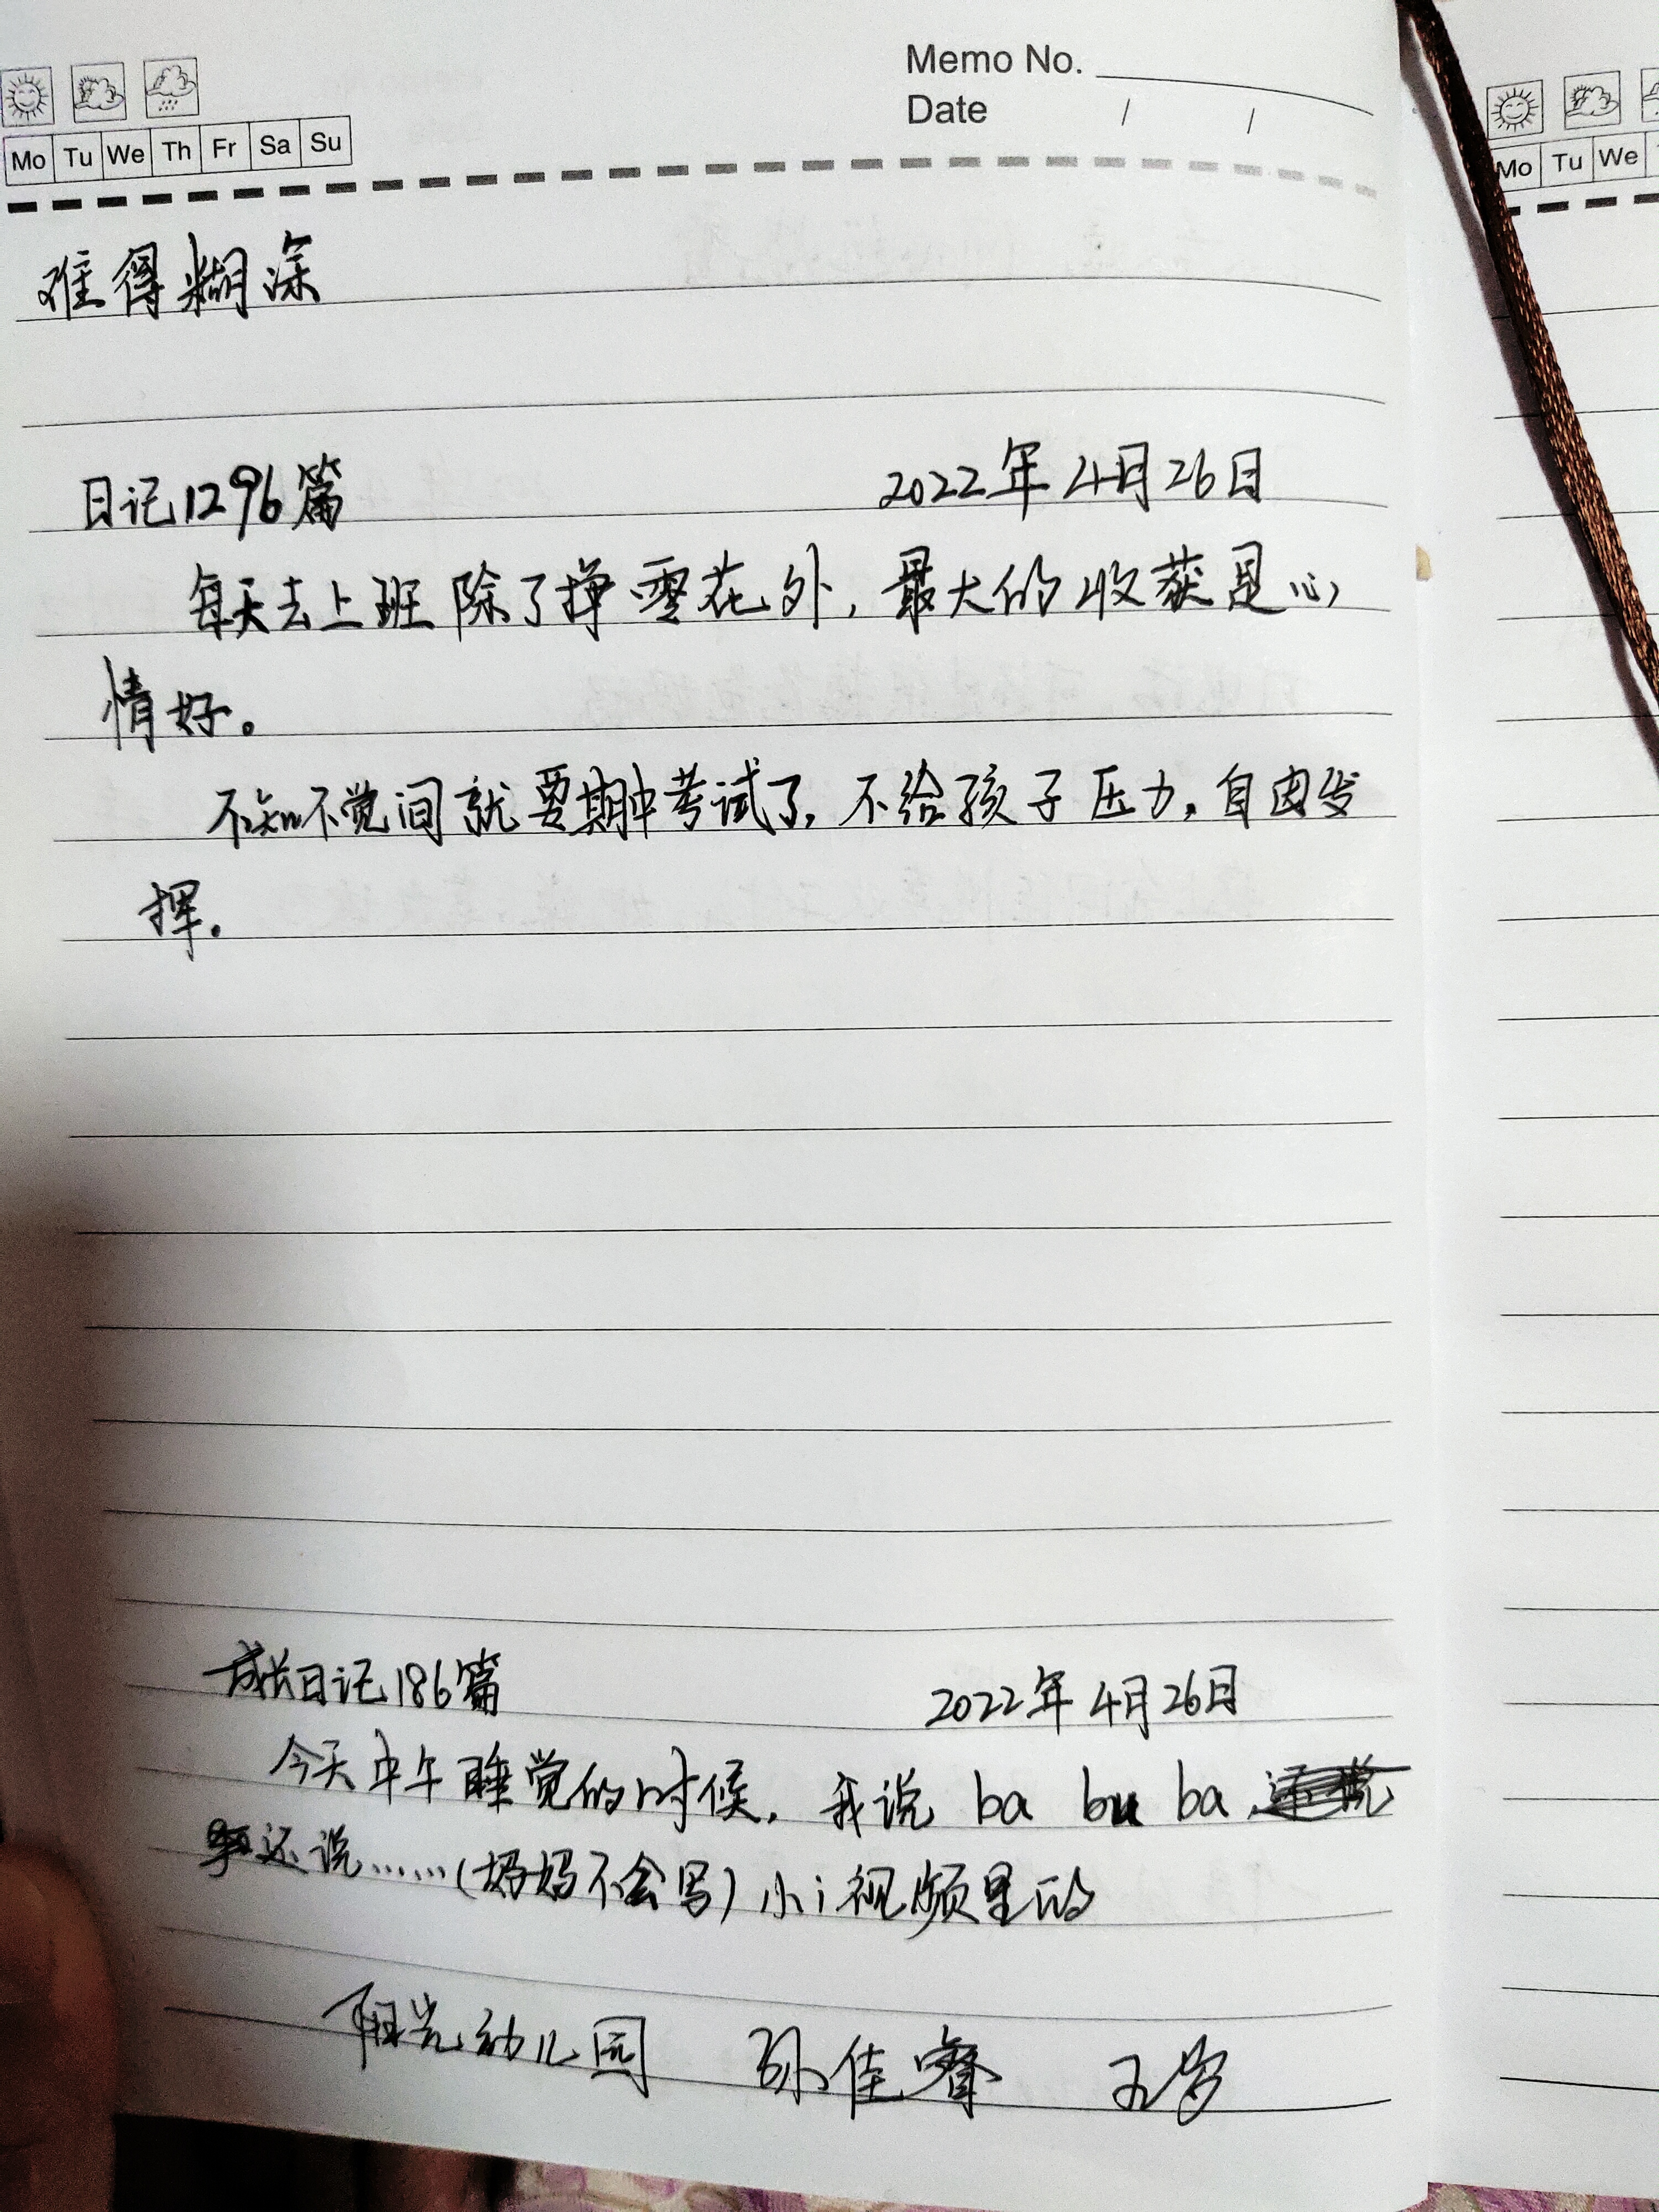 Memo No.
Date / /
Mo Tu We Th Fr Sa Su
Mo Tu We
难得糊涂
日记1296篇 2022年4月26日
每天去上班除了挣零花外，最大的收获是心
情好。
不知不觉间就要期中考试了，不给孩子压力，自由发
挥.
成长日记186篇 2022年4月26日
今天中午睡觉的时候，我说 ba bu ba
还说……(妈妈不会写)小i视频里的
阳光幼儿园 孙佳睿 五岁